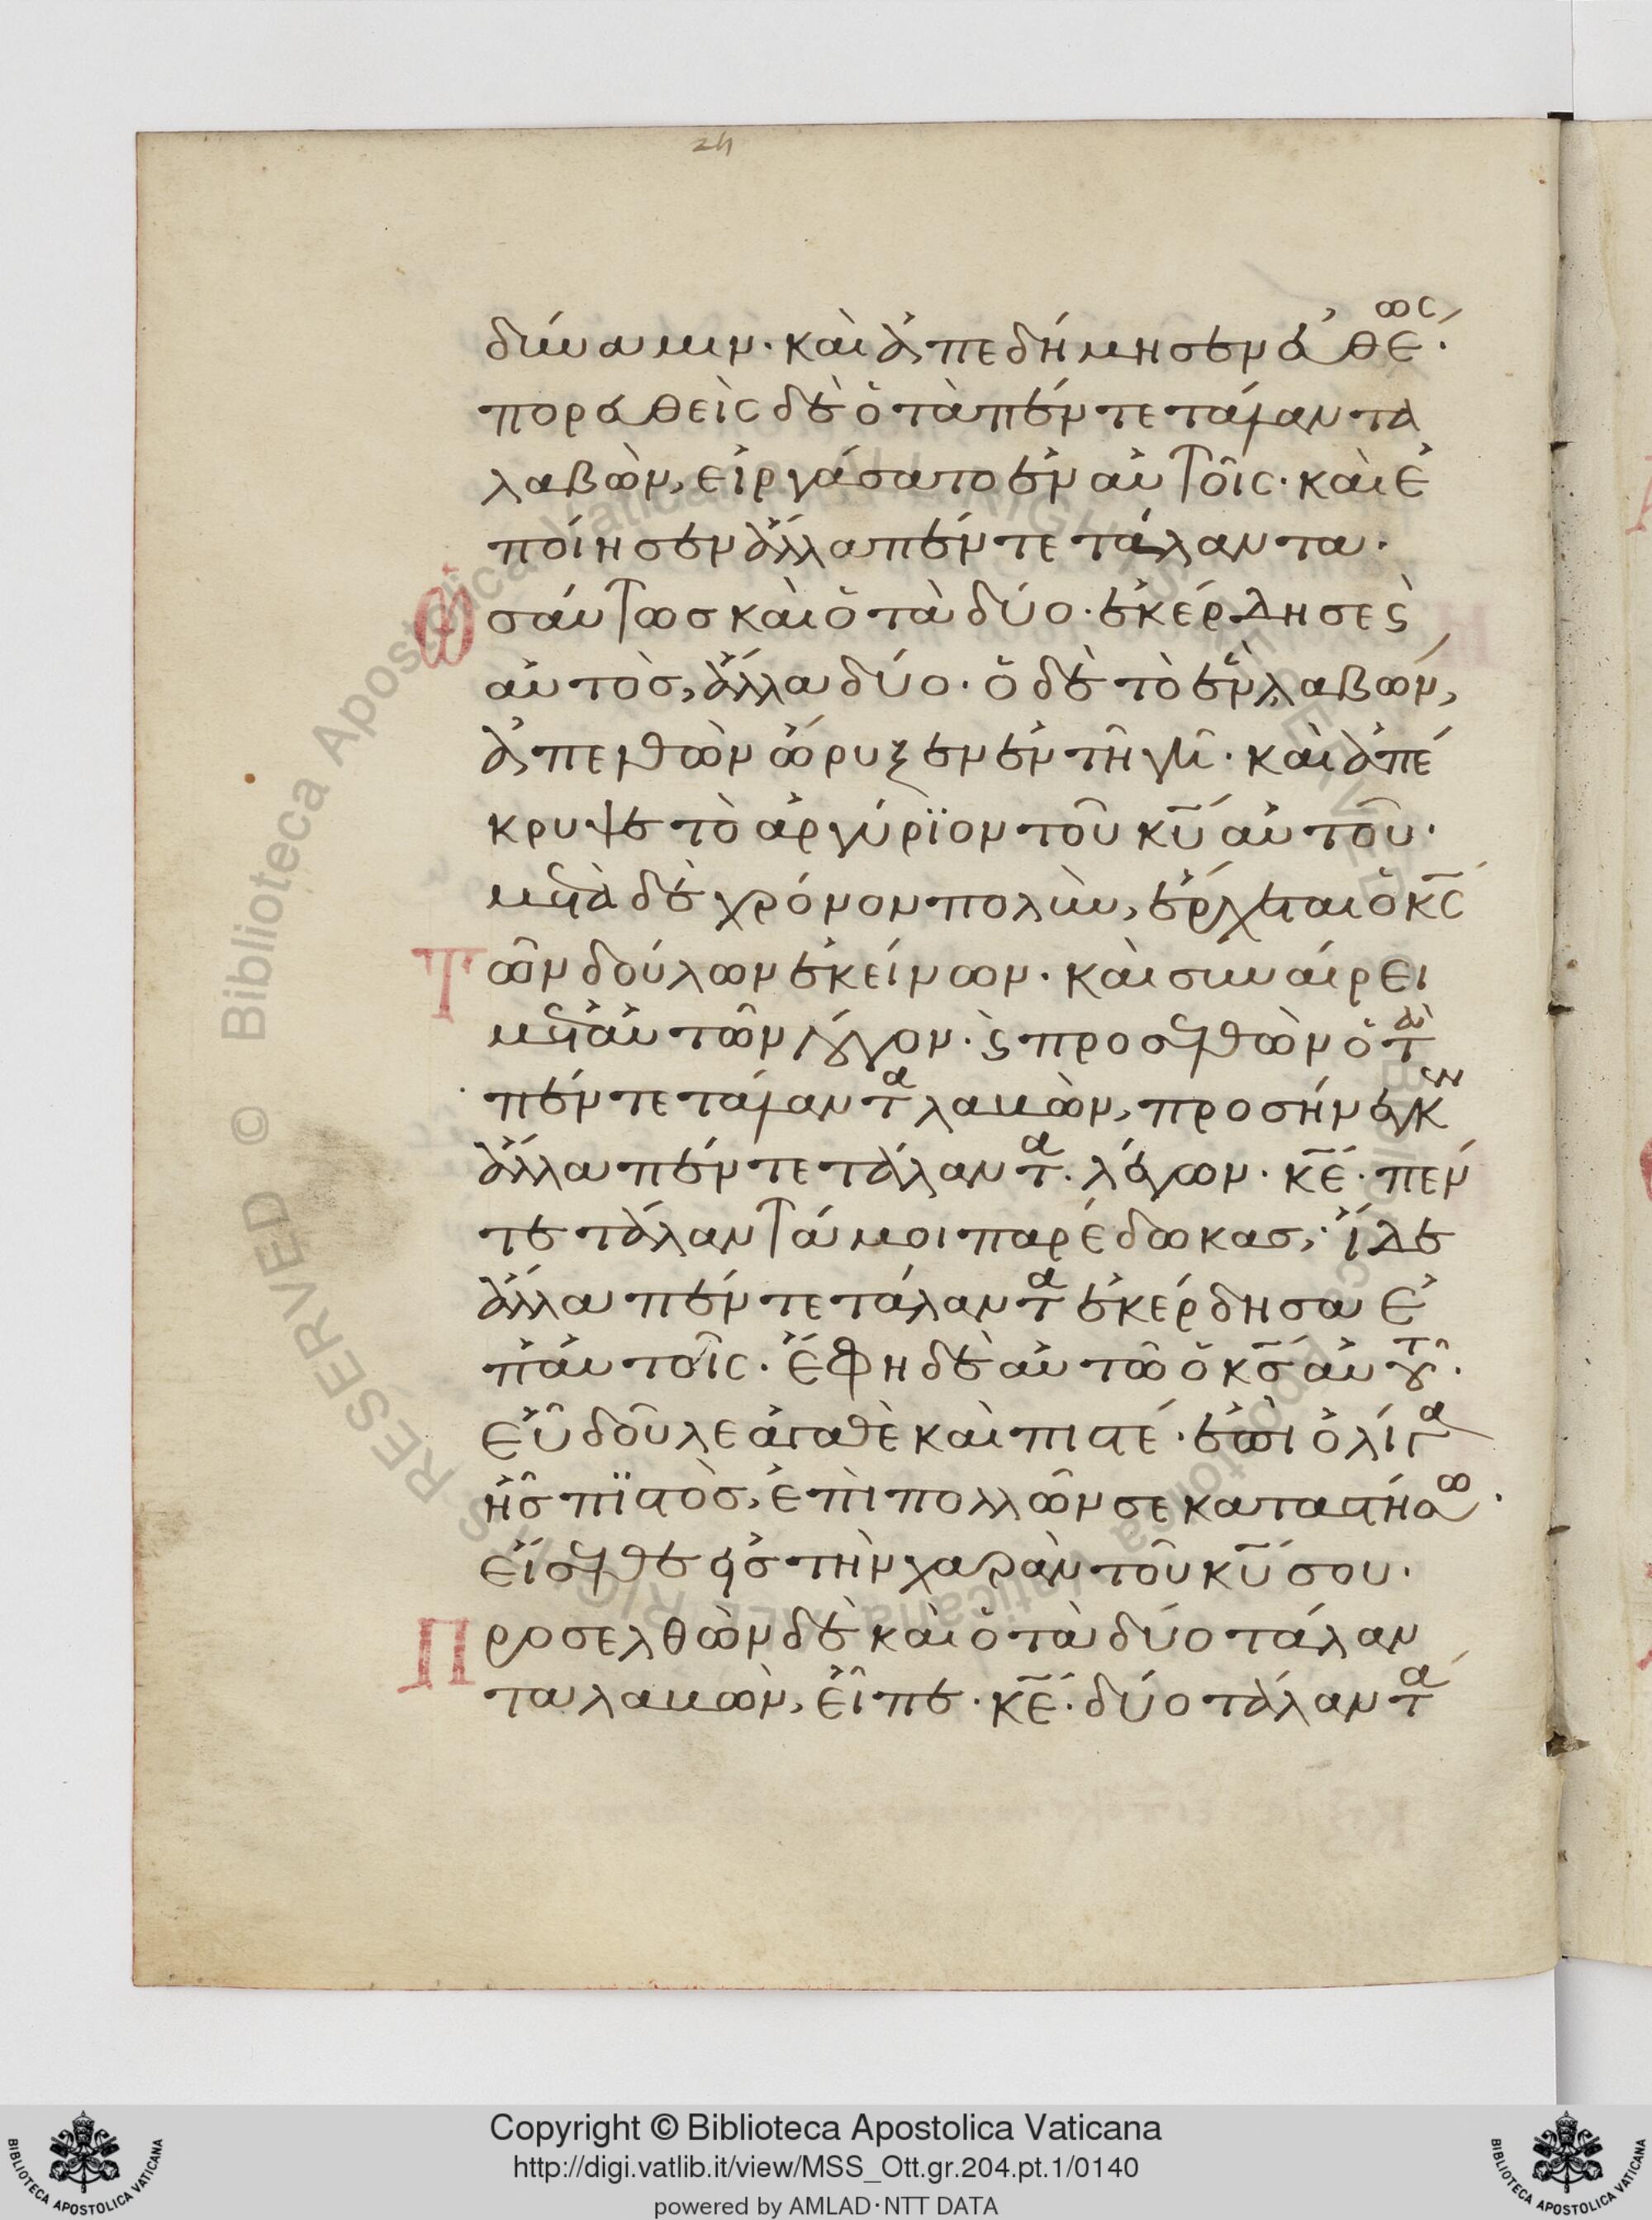 24
δύναμιν· καὶ ἀπεδήμησεν εὐθέως·
πορευθεὶς δὲ ὁ τὰ πέντε τάλαντα
λαβὼν, εἰργάσατο ἐν αὐτοῖς· καὶ ἐ
ποίησεν ἄλλα πέντε τάλαντα·
Ὡσαύτως καὶ ὁ τὰ δύο· ἐκέρδησε ϛ̀
αὐτὸς, ἄλλα δύο· ὁ δὲ τὸ ἓν λαβών,
ἀπελθὼν ὤρυξεν ἐν τῆ γῆ· καὶ ἀπέ
κρυψε τὸ ἀργύρϊον τοῦ κ̅υ̅ αὐτοῦ·
μετὰ δὲ χρόνον πολὺν, ἔρχεται ὁ κ̅ς̅
Τῶν δούλων ἐκείνων· καὶ συναίρει
μετ' αὐτῶν λόγον· ϛ̀ προσελθὼν ὁ τὰ
πέντε τάλαντα λαβὼν, προσήνεγκεν
ἄλλα πέντε τάλαντα· λέγων· κ̅ε̅· πέν
τε τάλαντά μοι παρέδωκας,· ἴδε
ἄλλα πέντε τάλαντα ἐκέρδησα ἐ
π' αὐτοῖς· ἔφη δὲ αὐτῶ ὁ κ̅ς̅ αὐτοῦ·
εὖ δοῦλε ἀγαθὲ καὶ πιστέ· ἐπὶ ὀλίγα
ἦς πϊστὸς, ἐπὶ πολλῶν σε καταστήσω·
εἴσελθε εἰς τὴν χαρὰν τοῦ κ̅υ̅ σου·
Προσελθὼν δὲ καὶ ὁ τὰ δύο τάλαν
τα λαβὼν, εἶπε· κ̅ε̅· δύο τάλαντα
© Biblioteca Apostolica Vaticana
Copyright © Biblioteca Apostolica Vaticana
http://digi.vatlib.it/view/MSS_Ott.gr.204.pt.1/0140
powered by AMLAD·NTT DATA
BIBLIOTECA APOSTOLICA VATICANA
BIBLIOTECA APOSTOLICA VATICANA